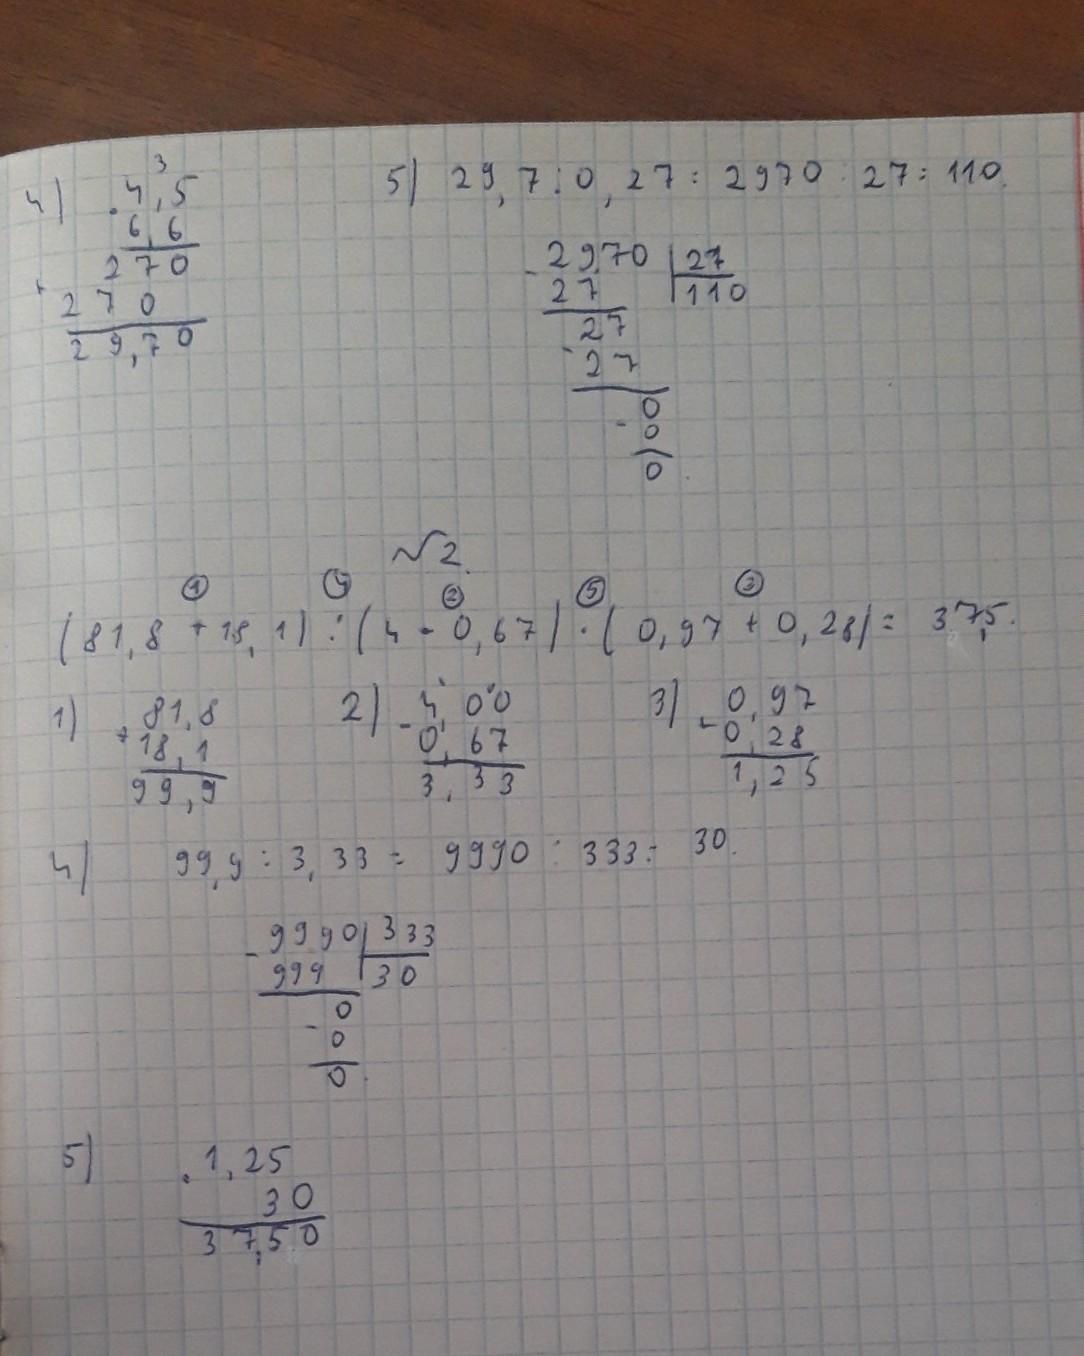 4) 3
· 4,5
6,6
270
+ 270
29,70
5) 29,7 : 0,27 = 2970 : 27 = 110.
- 2970 | 27
27 | 110
27
- 27
0
- 0
0
№2.
① ④ ② ⑤ ③
(81,8 + 18,1) : (4 - 0,67) · (0,97 + 0,28) = 37,5.
1) + 81,8
18,1
99,9
2) - 4,00
0,67
3,33
3) + 0,97
0,28
1,25
4) 99,9 : 3,33 = 9990 : 333 = 30.
- 9990 | 333
999 | 30
0
- 0
0.
5) · 1,25
30
37,50